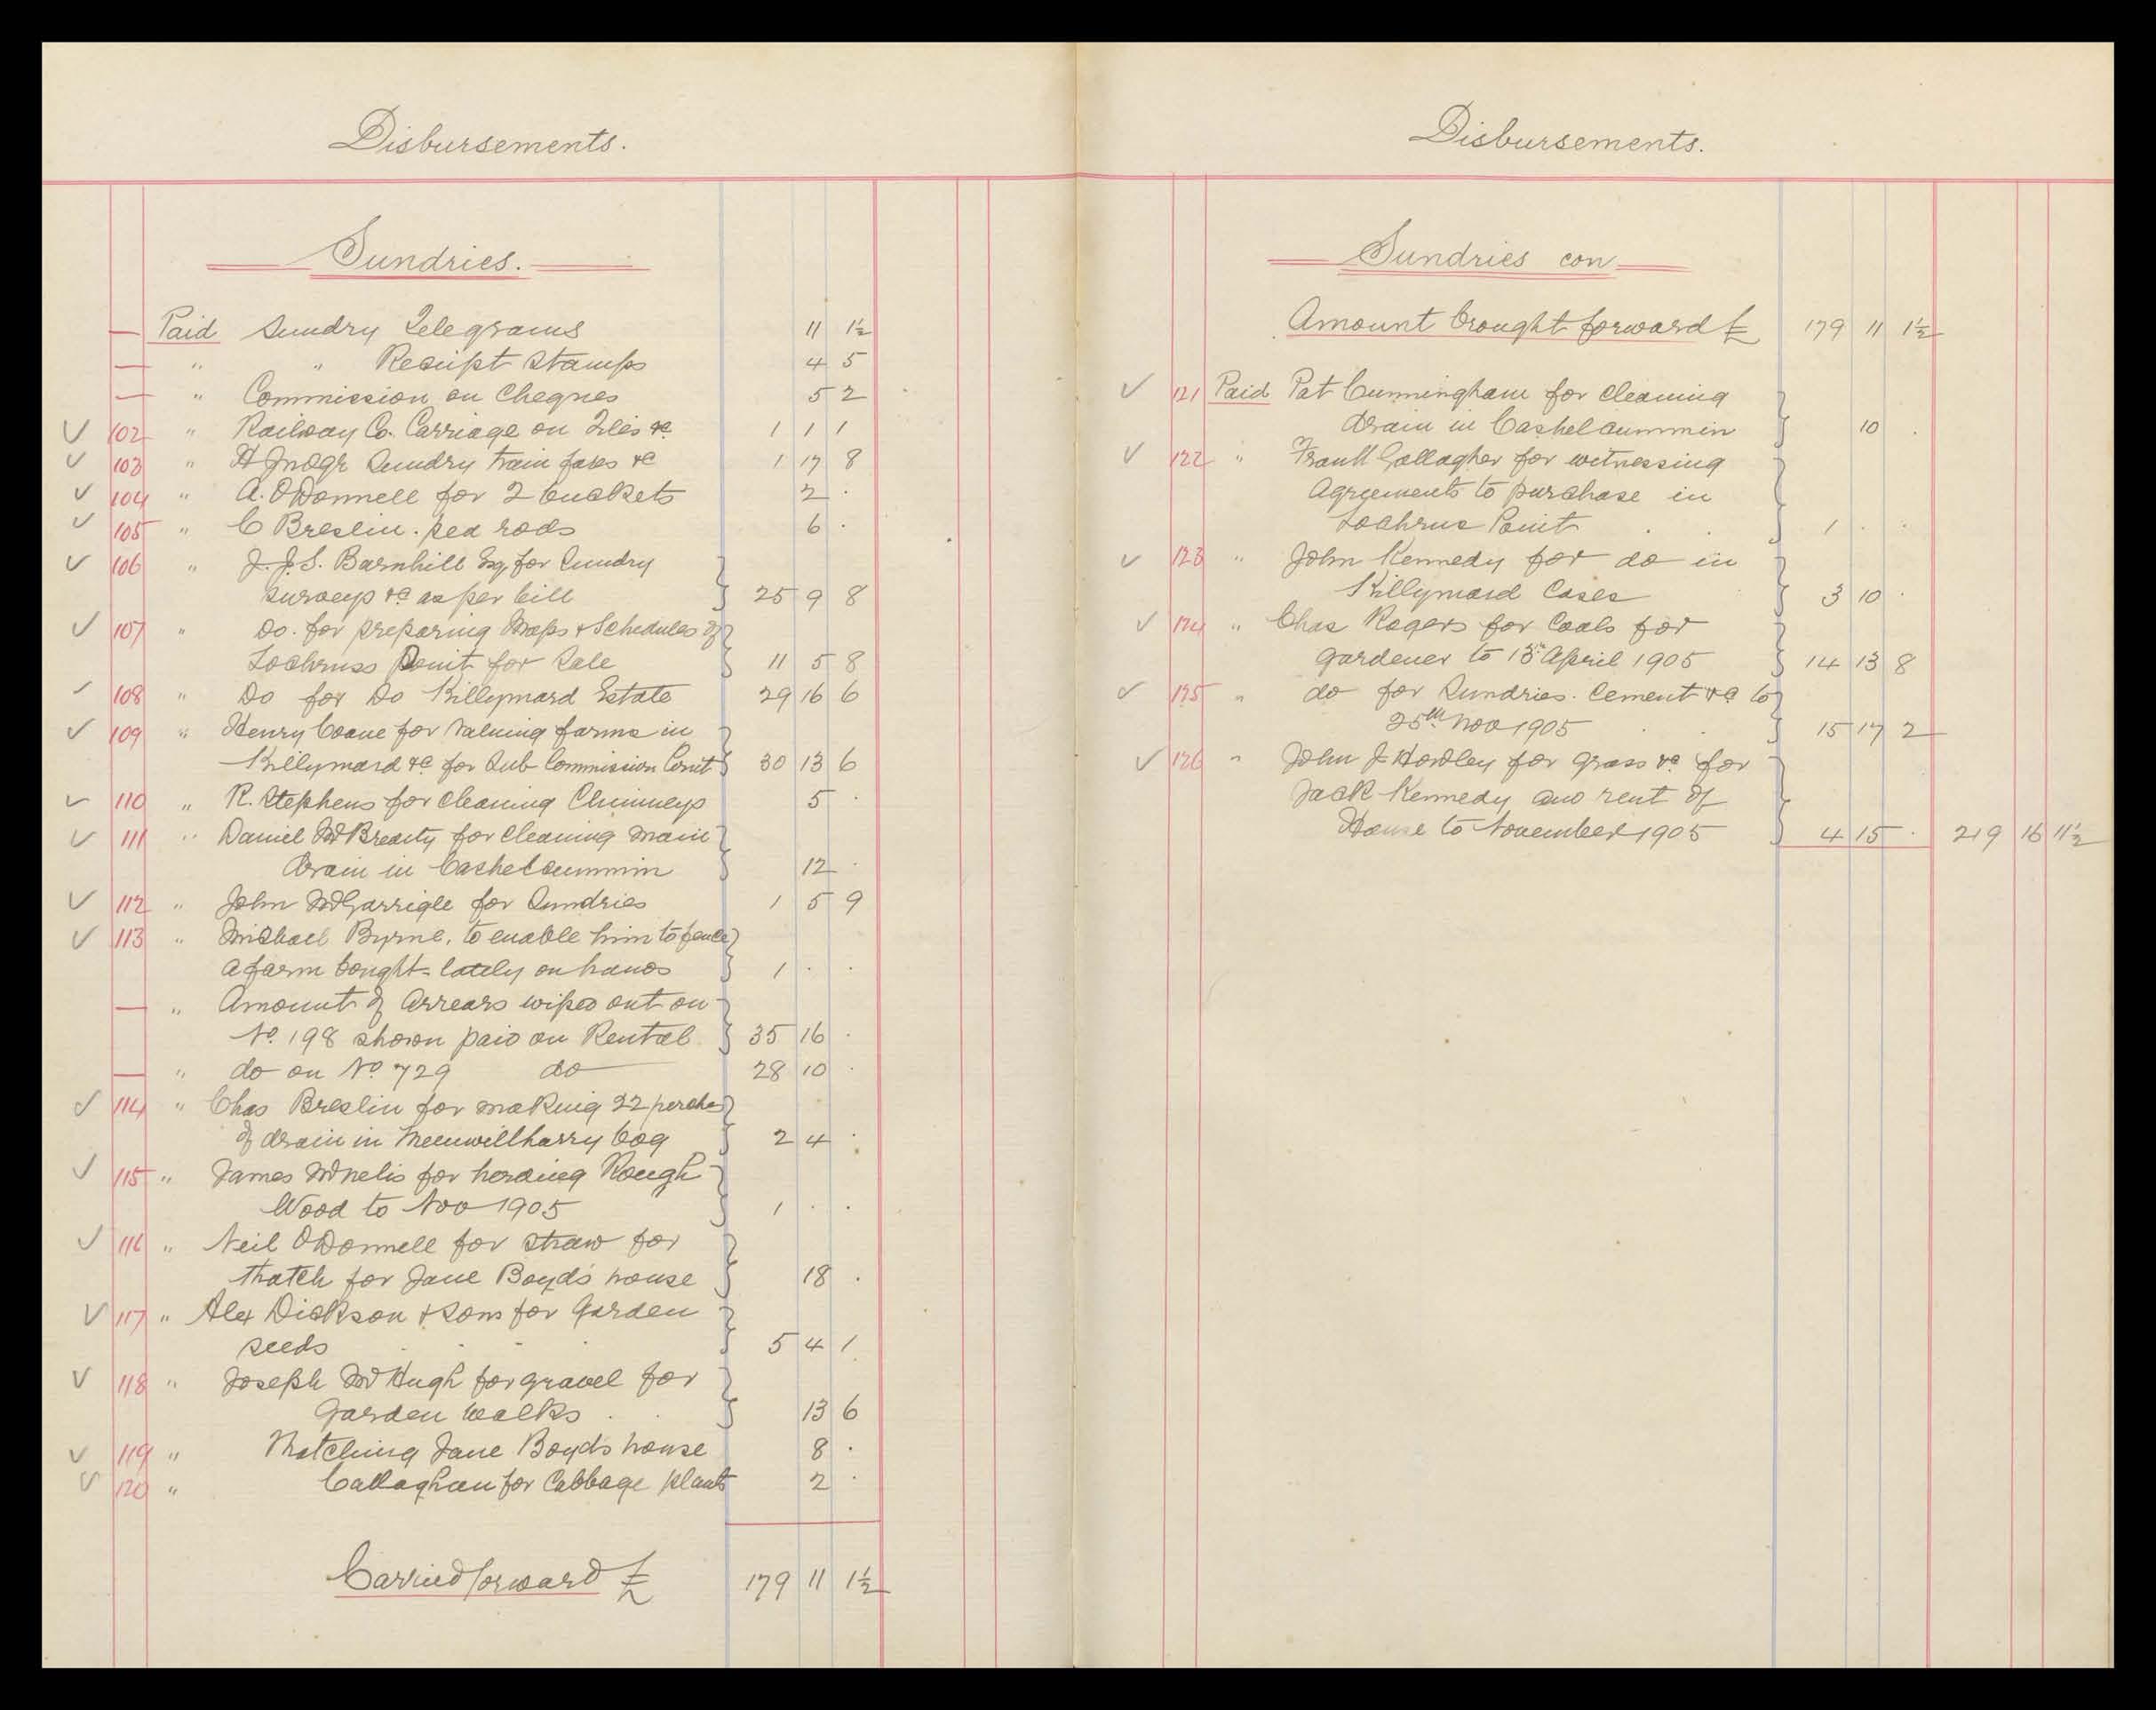 Disbursements.
Sundries.
— Paid Sundry Telegrams 11 1½
— " " Receipt Stamps 4 5
— " Commission on Cheques 5 2
102 " Railway Co. Carriage on &c 1 1 1
103 " Sundry train fares &c 1 17 8
104 " A. O'Donnell for 2 buckets 2 .
105 " C Breslin . pea rods 6 .
106 " J. J. S. Barnhill Esq for Sundry
surveys &c as per bill 25 9 8
107 " Do. for preparing Maps & Schedules of
Lochruss Point for Sale 11 5 8
108 " Do for Do Killymard Estate 29 16 6
109 " Henry Coane for valuing farms in
Killymard &c for Sub Commission Court 30 13 6
110 " R. Stephens for cleaning Chimneys 5 .
111 " Daniel McBrearty for cleaning main
drain in Cashelcummin 12 .
112 " John McGarrigle for Sundries 1 5 9
113 " Michael Byrne, to enable him to fence
a farm bought lately on hands 1 . .
— " Amount of Arrears wiped out on
No. 198 shown paid on Rental 35 16 .
— " do on No 729 do 28 10 .
114 " Chas Breslin for making 22 perches
of drain in Meenwillharry bog 2 4 .
115 " James McNelis for herding Rough
Wood to Nov 1905 1 . .
116 " Neil O'Donnell for straw for
thatch for Jane Boyd's house 18 .
117 " Alex Dickson & Sons for Garden
seeds 5 4 1
118 " Joseph McHugh for gravel for
Garden walks 13 6
119 " Thatching Jane Boyds house 8 .
120 " Callaghan for Cabbage plants 2 .
Carried forward £ 179 11 1½
Disbursements.
Sundries con
Amount brought forward £ 179 11 1½
121 Paid Pat Cunningham for cleaning
drain in Cashelcummin 10 .
122 " Frank Gallagher for witnessing
Agreements to purchase in
Lochrus Point 1 . .
123 " John Kennedy for do in
Killymard Cases 3 10 .
124 " Chas Rogers for Coals for
gardener to 13th April 1905 14 13 8
125 " do for Sundries. Cement &c to
25th Nov 1905 15 17 2
126 " John J. Hordley for grass &c for
Jack Kennedy and rent of
House to November 1905 4 15 . 219 16 11½